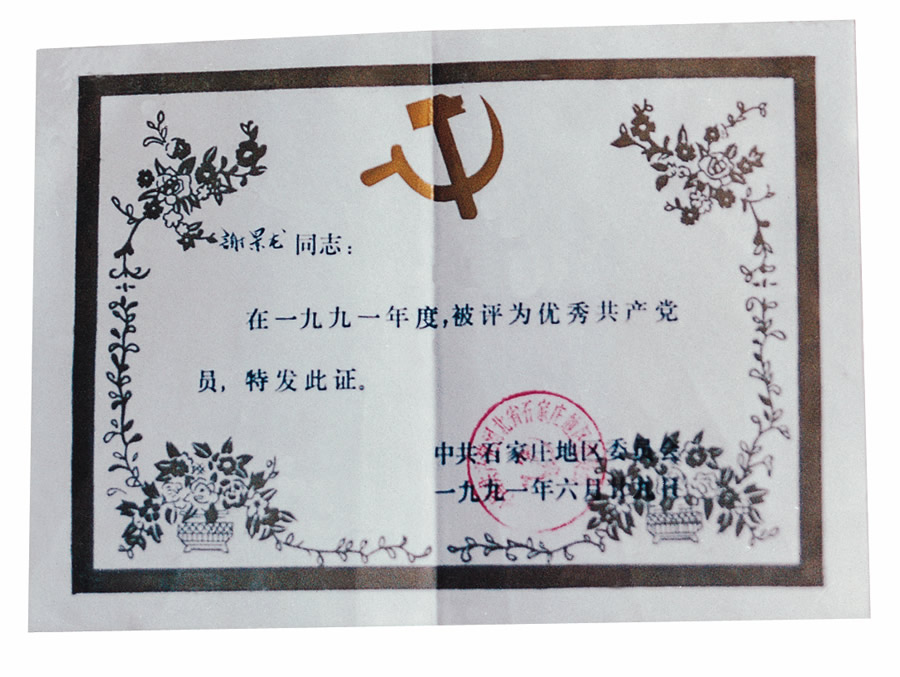 謝景龙 同志：
在一九九一年度，被评为优秀共产党
员，特发此证。
中共石家庄地区委员会
一九九一年六月廿九日
河北省石家庄地区